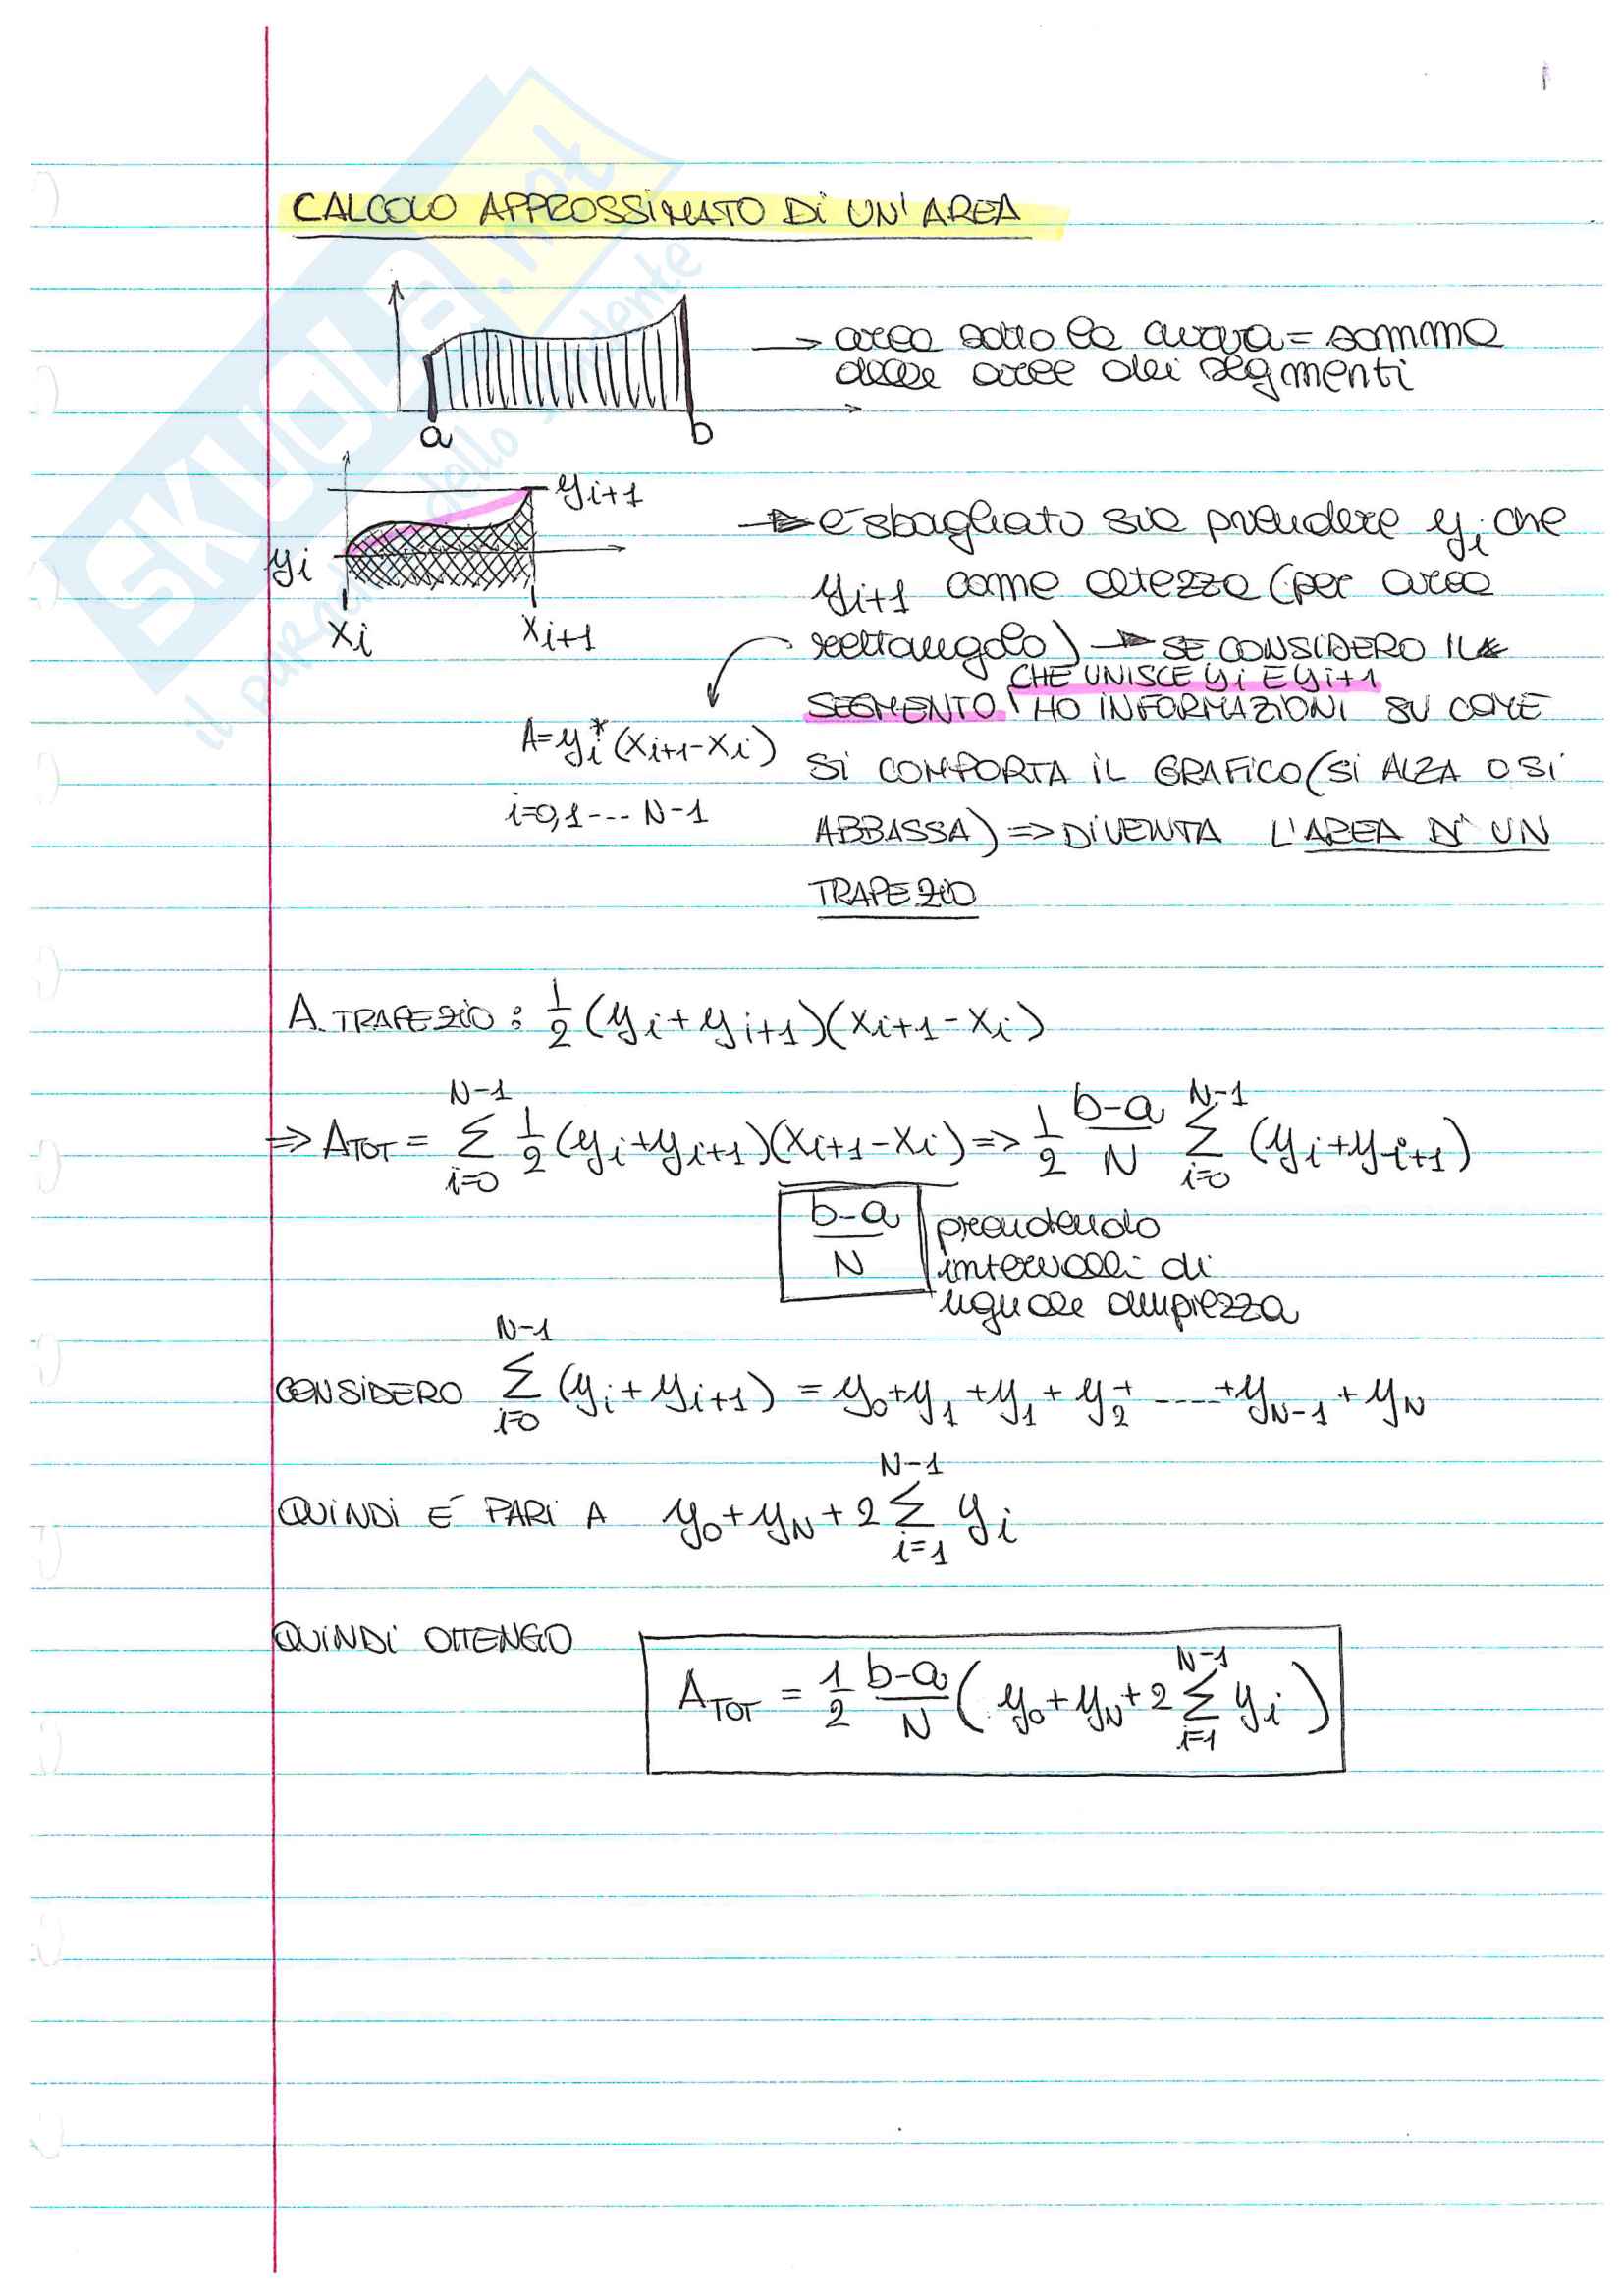 1
CALCOLO APPROSSIMATO DI UN' AREA
→ area sotto la curva = somma
delle aree dei segmenti
a
b
y_{i+1}
y_i
x_i
x_{i+1}
→ è sbagliato sia prendere y_i che
y_{i+1} come altezza (per area
rettangolo) → SE CONSIDERO IL
CHE UNISCE y_i E y_{i+1}
SEGMENTO HO INFORMAZIONI SU COME
A=y_i^*(x_{i+1}-x_i)
SI COMPORTA IL GRAFICO (SI ALZA O SI
i=0,1---- N-1
ABBASSA) => DIVENTA L'AREA DI UN
TRAPEZIO
A. TRAPEZIO : 1/2 (y_i+y_{i+1})(x_{i+1}-x_i)
=> A_{TOT} = Σ_{i=0}^{N-1} 1/2 (y_i+y_{i+1})(x_{i+1}-x_i) => 1/2 (b-a)/N Σ_{i=0}^{N-1} (y_i+y_{i+1})
(b-a)/N
prendendo
intervalli di
uguale ampiezza
CONSIDERO Σ_{i=0}^{N-1} (y_i+y_{i+1}) = y_0+y_1+y_1+y_2+----+y_{N-1}+y_N
QUINDI È PARI A y_0+y_N+2 Σ_{i=1}^{N-1} y_i
QUINDI OTTENGO
A_{TOT} = 1/2 (b-a)/N ( y_0+y_N+2 Σ_{i=1}^{N-1} y_i )
SKUOLA.net
il paradiso dello studente